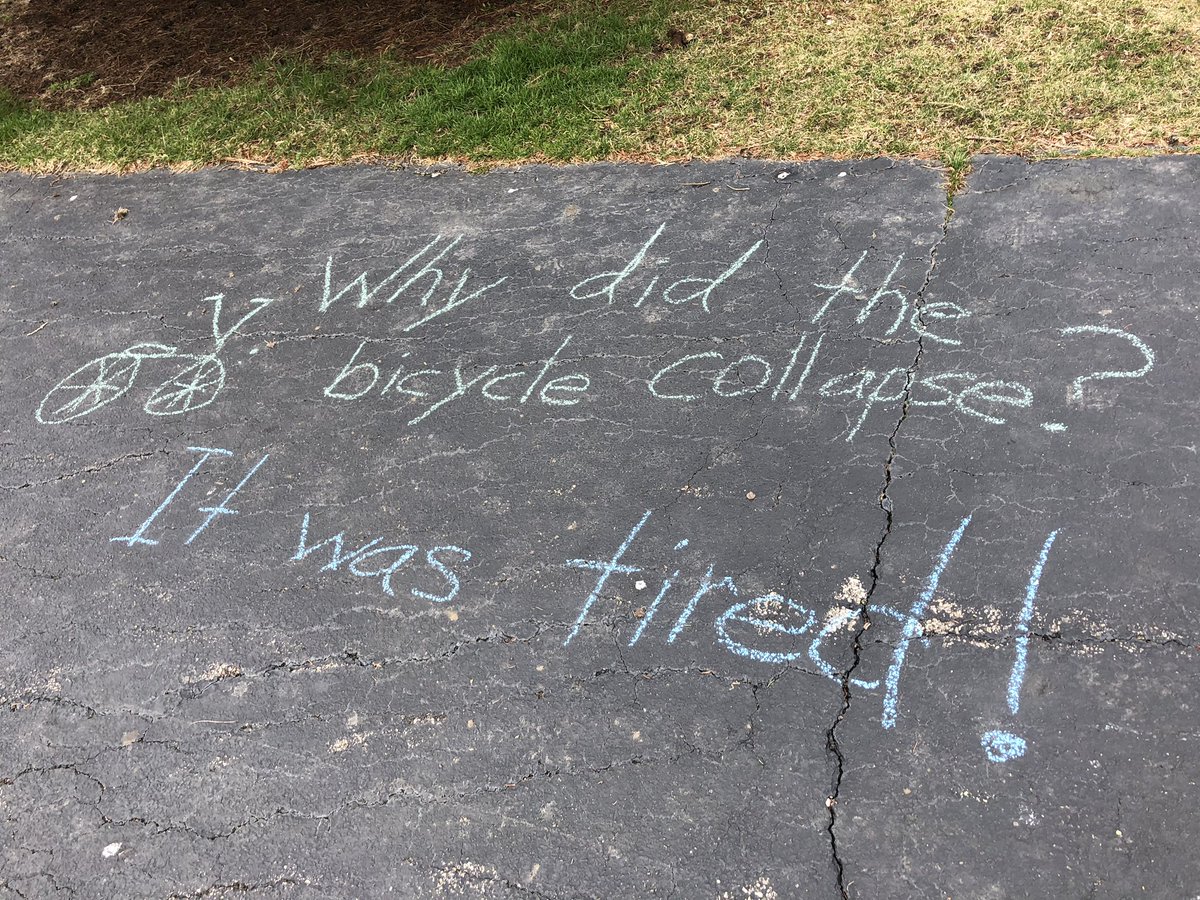 Why did the
bicycle collapse?
It was tired!